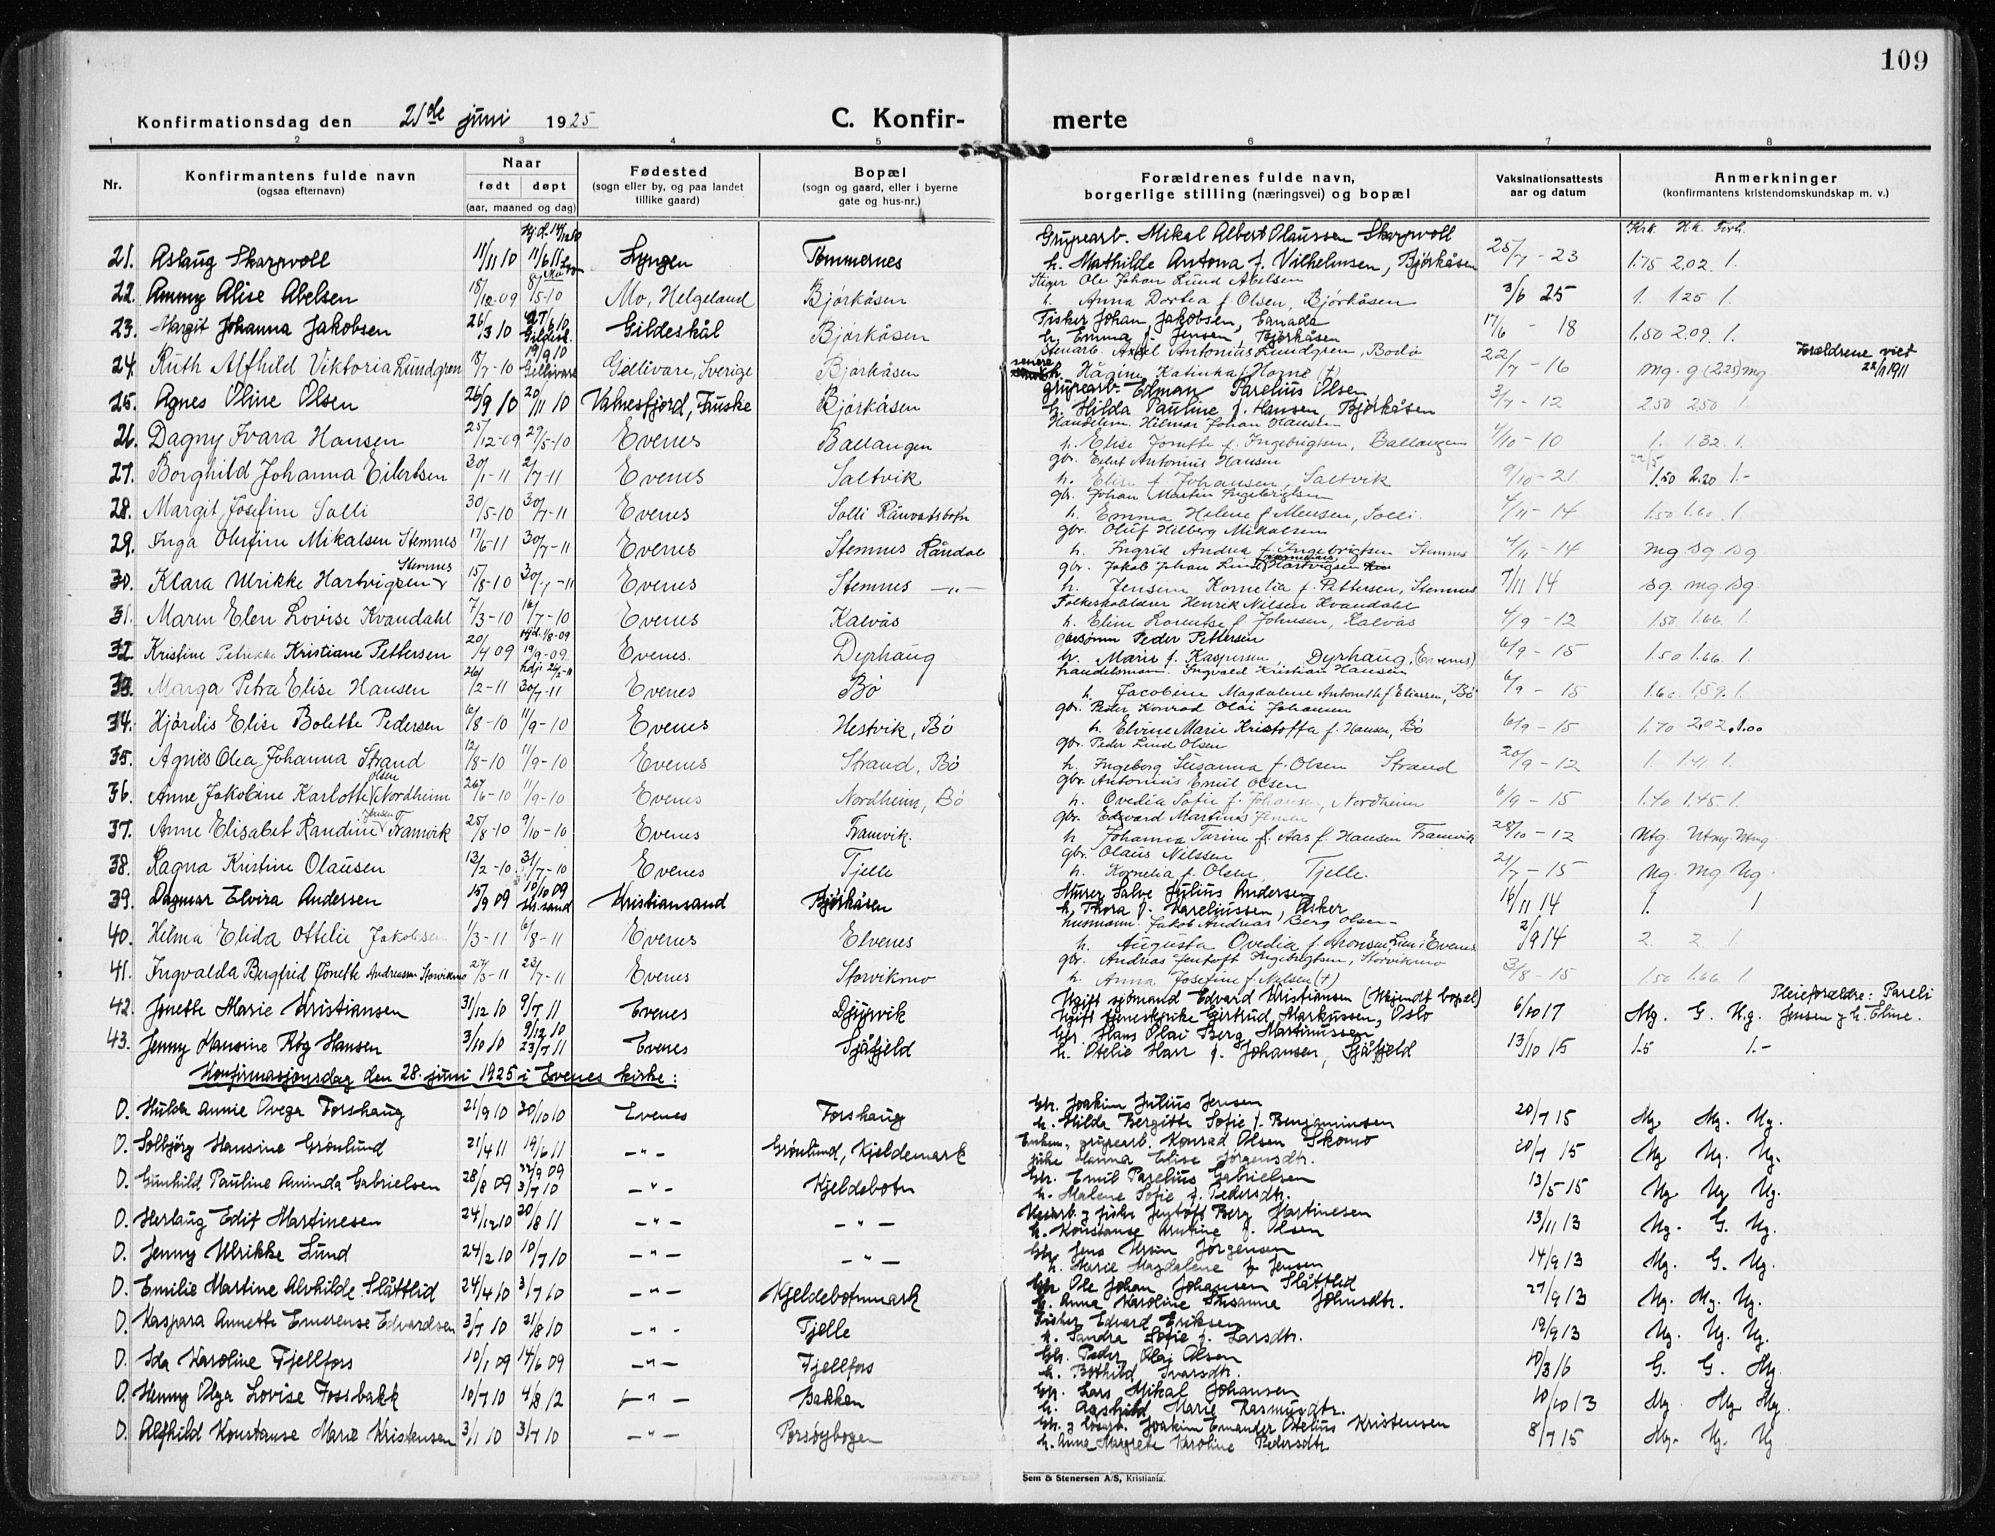 109
Konfirmationsdag den 21de juni 1925 C. Konfir- merte
1 2 3 4 5 6 7 8
Nr. Konfirmantens fulde navn (ogsaa efternavn) Naar født døpt (aar, maaned og dag) Fødested (sogn eller by, og paa landet tillike gaard) Bopæl (sogn og gaard, eller i byerne gate og hus-nr.) Forældrenes fulde navn, borgerlige stilling (næringsvei) og bopæl Vaksinationsattests aar og datum Anmerkninger (konfirmantens kristendomskundskap m. v.)
21. Aslaug Skarpvoll 11/11 10 11/6 11 Lyngen Tømmernes Grupearb. Mikal Albert Olaussen Skarpvoll
h. Mathilde Antona f. Vilhelmsen, Bjørkåsen 25/7 - 23 1.75 2.02 1.
22. Ammy Alise Abelsen 18/12-09 8/5-10 Mo, Helgeland Bjørkåsen Stiger Ole Johan Lund Abelsen
h. Anna Dortea f. Olsen, Bjørkåsen 3/6 25 1. 1.25 1.
23. Margit Johanna Jakobsen 26/3 10 27/6 10 Gildeskål Bjørkåsen Fisker Johan Jakobsen, Canada
h. Emma f. Jensen, Bjørkåsen 17/6 - 18 1.50 2.09. 1.
24. Ruth Alfhild Viktoria Lundgren 18/7-10 19/9 10 Gellivare Gellivare, Sverige Bjørkåsen Stenarb. Axel Antonius Lundgren, Bodø
h. Hagine Katinka f. Horne (+) 22/7 - 16 mg. g (2.25) mg Forældrene viet 22/1 1911
25. Agnes Oline Olsen 26/9 10 20/11 10 Valnesfjord, Fauske Bjørkåsen Grupearb. Edman Parelius Olsen
h. Hilda Pauline f. Hansen, Bjørkåsen 3/7 - 12 2.50 2.50 1.
26. Dagny Ivara Hansen 25/12-09 29/5-10 Evenes Ballangen Handelsm. Hilmar Johan Hansen
h. Elise Jonette f. Ingebrigtsen, Ballangen 4/10 - 10 1. 1.32. 1.
27. Borghild Johanna Eilertsen 30/1-11 2/7-11 Evenes Saltvik gbr. Eilert Antonius Hansen
h. Elise f. Johansen, Saltvik 9/10 - 21 1.50 2.20 1.-
28. Margit Josefine Solli 30/5-10 30/7-11 Evenes Solli Rånvatsbotn gbr. Johan Martin Ingebrigtsen
h. Emma Helene f. Mensen, Solli. 4/11 - 14 1.50 1.60. 1.
29. Inga Olufine Mikalsen Stemnes 17/6-11 30/7-11 Evenes Stemnes Råndal gbr. Oluf Hilberg Mikalsen
h. Ingrid Andrea f. Ingebrigtsen Stemnes 4/11 - 14 mg sg sg
30. Klara Ulrikke Hartvigsen Stemnes 15/8-10 30/7-11 Evenes Stemnes —"— gbr. Jakob Johan Lind Hartvigsen
h. Jensine Kornelia f. Pettersen, Stemnes 7/11 14 sg. mg. sg.
31. Maren Elen Lovise Kvandahl 7/3-10 16/7-10 Evenes Kalvås Folkeskolelærer Henrik Nilsen Kvandahl
h. Eline Lorentse f. Johnsen, Kalvås 4/9 - 12 1.50. 1.66. 1.
32. Kristine Petrikke Kristiane Pettersen 20/4 09 19/9-09. Evenes. Dyrhaug gårsønn Peder Pettersen
h. Marie f. Kaspersen Dyrhaug, (Evenes) 6/9 - 15 1.50 1.66. 1.
33. Marga Petra Elise Hansen 26/2-11 30/7-11 Evenes Bø Handelsmann. Ingvald Kristian Hansen
h. Jacobine Magdalene Antonette f. Eliassen, Bø 6/9 - 15 1.60. 1.59. 1.
34. Hjørdis Elise Bolette Pedersen 6/8-10 11/9-10 Evenes Hestvik, Bø gbr. Peder Konrad Olai Johansen
h. Elvine Marie Kristoffa f. Hansen, Bø 6/9 - 15 1.70 2.02. 1.00
35. Agnes Olea Johanna Strand 12/8-10 11/9-10 Evenes Strand, Bø gbr. Peder Lind Olsen
h. Ingeborg Susanna f. Olsen Strand 20/9 - 12 1. 1.41 1.
36. Anne Jakobine Karlotte Olsen Nordheim 26/6-10 11/9-10 Evenes Nordheim, Bø gbr. Antonius Emil Olsen
h. Ovedia Sofie f. Johansen, Nordheim 6/9 - 15 1.40 1.45 1.
37. Anne Elisabet Randine Jensen Framvik 25/8-10 9/10-10 Evenes Framvik. gbr. Edvard Martinus Jensen
h. Johanna Turine f. Aas f. Hansen Framvik 28/10 - 12 Ntg Ntmg. Ntmg.
38. Ragna Kristine Olausen 13/2-10. 31/7-10 Evenes Tjelle gbr. Olaus Nilssen
h. Kornelia f. Olsen, Tjelle. 21/7 - 15 Mg. mg Mg.
39. Dagmar Elvira Andersen 15/9 09 10/10 09 Kr.sand Kristiansand Bjørkåsen Murer Salve Julius Andersen
h. Thora f. Kareliussen, Asker 16/11 14 1. 1
40. Helma Elida Ottelie Jakobsen 1/3-11 6/8-11 Evenes Elvenes Husmann. Jakob Andreas Berg Olsen-
h. Augusta Ovedia f. Aronsen Lien i Evenes 2/9 14 2. 2. 1
41. Ingvalda Bergfrid Jonette Andreassen Storvikmo 27/3-11 23/7-11 Evenes Storvikmo gbr. Andreas Jentoft Ingebrigtsen, Storvikmo
h. Anna Josefine f. Nilsen (+) 3/8 - 15 1.50 1.66 1.
42. Jonette Marie Kristiansen 31/12 10 9/7 11 Evenes Djupvik Ugift sjømand Edvard Kristiansen (Ukjendt bopæl)
Ugift tjenestpike Gjertrud Markussen, Oslo 6/10 17 Mg. G. Ug. Pleieforældre: Pareli Jensen g h. Eline.
43. Jenny Hansine Kog Hansen 3/10 10 9/12 10 23/7 11 Evenes Sjåfjeld Gbr. Hans Olai Berg Martinussen
h. Otelie Harr f. Johansen, Sjåfjeld 13/10 15 1.5 1.-
Konfirmasjonsdag den 28. juni 1925 i Evenes kirke:
D. Hulda Annie Ovega Forshaug 21/9 10 30/10 10 Evenes Forshaug Gbr. Joakim Julius Jensen
h. Hilda Bergitte Sofie f. Benjaminsen 20/7 15 Mg Mg. Mg.
D. Solbjørg Hansine Grønlund 21/4 11 19/6 11 —"— Grønlund, Kjeldemark Enkem., grupearb. Konrad Olsen Skomo
pike Hanna Elise Jørgensdtr. 20/7 15 Mg Mg. Mg.
D. Gunhild Pauline Aminda Gabrielsen 28/8 09 22/9 09 3/7 10 —"— Kjeldebotn Gbr. Emil Parelius Gabrielsen
h. Malene Sofie f. Pedersdtr. 13/5-15 Mg Mg Mg.
D. Herlaug Edif Martinesen 24/12 10 20/8 11 —"— —"— Vesarb. g fisker Jentoft Berg Martinesen
h. Konstanse Amtine f. Olsen 13/11 13 Mg. G. Mg.
D. Jenny Ulrikke Lund 24/2 10 10/7 10 —"— —"— Gbr. Jens Ursin Jørgensen
h. Marie Magdalene f. Jensen 14/9 13 Mg. G. Mg.
D. Emilie Martine Alvhilde Slåttlid 24/4 10 3/7 10 —"— Kjeldebotnmark Gbr. Ole Johan Johansen Slåttlid
h. Anna Karoline Susanna Johnsdtr. 27/9 13 Mg. Mg. Mg.
D. Kaspara Annette Emerense Edvardsen 3/7 10 21/8 10 —"— Tjelle Fisker Edvard Eriksen
h. Sandra Sofie f. Larsdtr. 19/9 13 Mg. Mg. Mg.
D. Ida Karoline Fjellfors 10/1 09 14/6 09 —"— Fjellfors Gbr. Peder Olai Olsen
h. Bothild Ivarsdtr. 20/3 16 G. G. Mg.
D. Henny Olga Lovise Fossbakk 10/7 10 4/8 12 —"— Bakken Gbr. Lars Mikal Johansen
h. Aashild Marie Rasmusdtr. 10/10 13 Mg. Mg Mg.
D. Alfhild Konstanse Marie Kristensen 3/1 10 3/7 10 —"— Porsøybogen Gbr. g løsarb. Joakim Emander Otelius Kristensen
h. Anna Margrete Karoline Pedersdtr 8/7 15 Mg. Mg. Mg
Sem & Stenersen A/S, Kristiania.